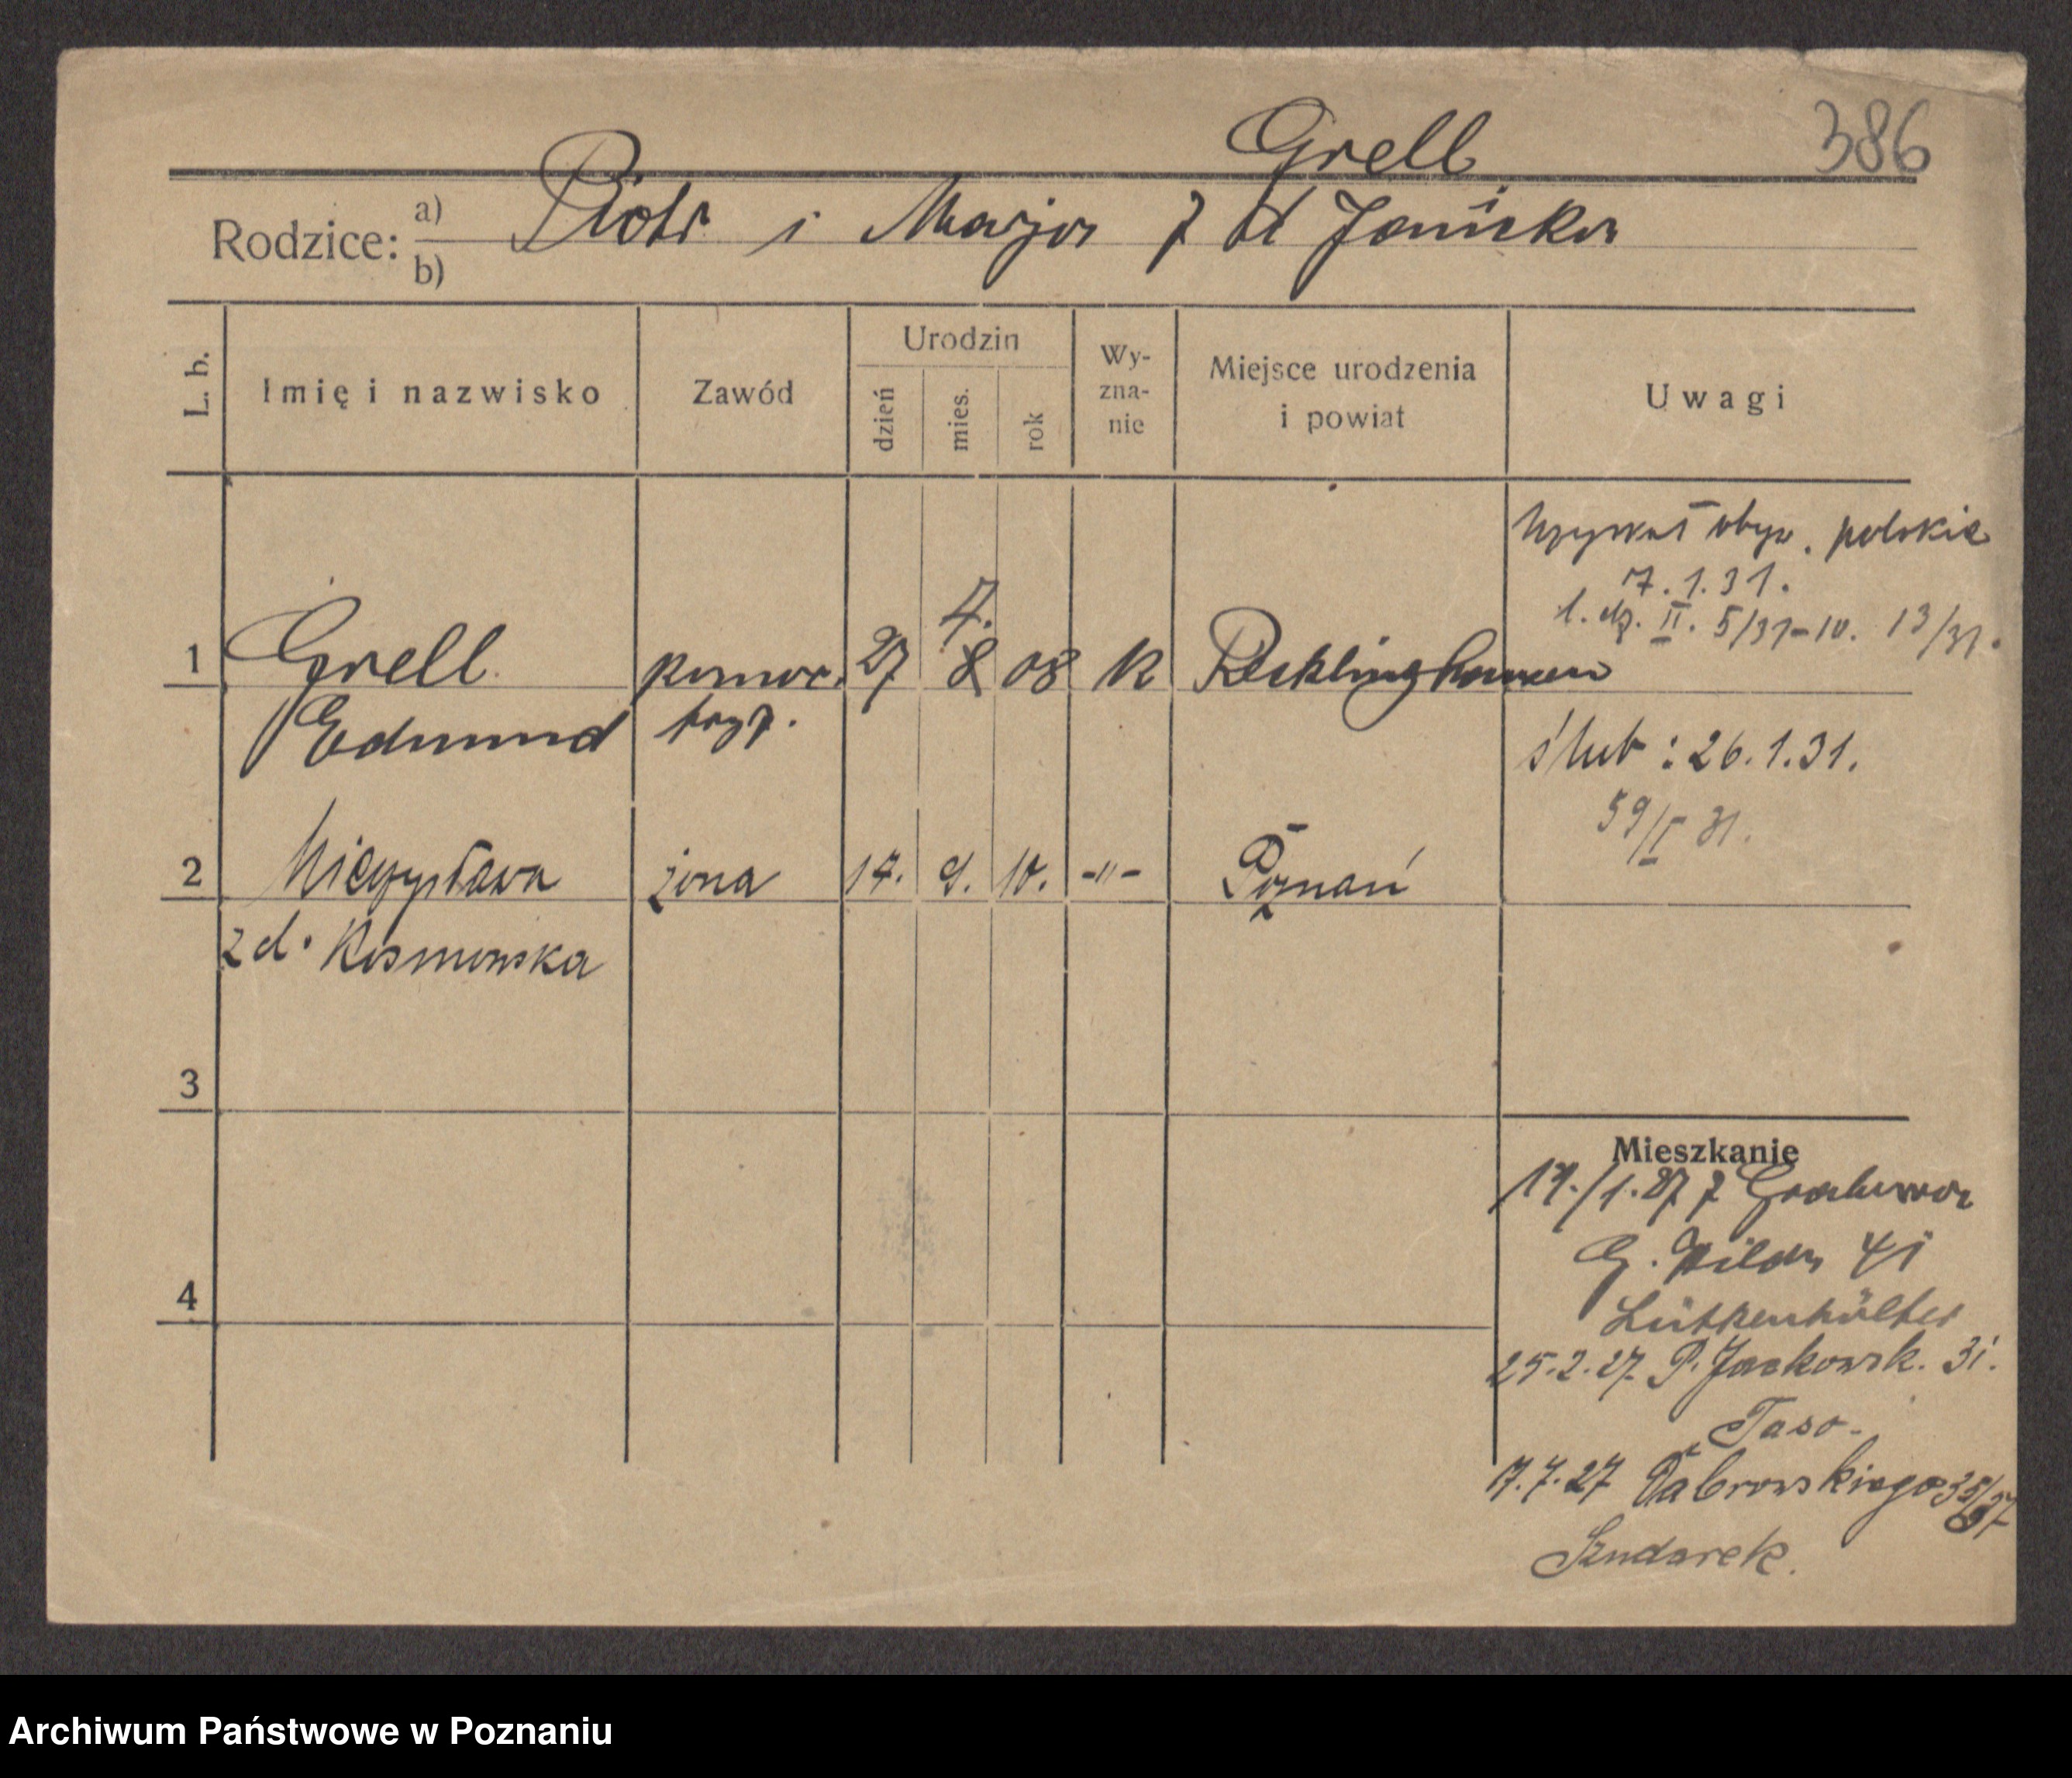 Grell
386
Rodzice: a) Piotr i Marja z d Janicka
b)
L. b.
Imię i nazwisko
Zawód
Urodzin
dzień
mies.
rok
Wy-
zna-
nie
Miejsce urodzenia
i powiat
Uwagi
Uzyskał obyw. polskie
7.1.31.
l. dz. II. 5/31-10. 13/31.
4.
1 Grell pomoc. 27 8 08 k Recklinghausen
Edmund fryz.
ślub : 26.1.31.
59/I 31.
2 Mieczysława żona 14. 9. 10. -"- Poznań
z d. Kosmowska
3
Mieszkanie
14./1.27 z Grabowa
G. Wilda 41
Lütkenhölter
4
25.2.27. P. Jackowsk. 31.
Taso-
17.7.27 Dąbrowskiego 35/37
Szudarek.
Archiwum Państwowe w Poznaniu